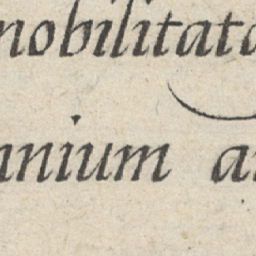 nobilitata
nnium a